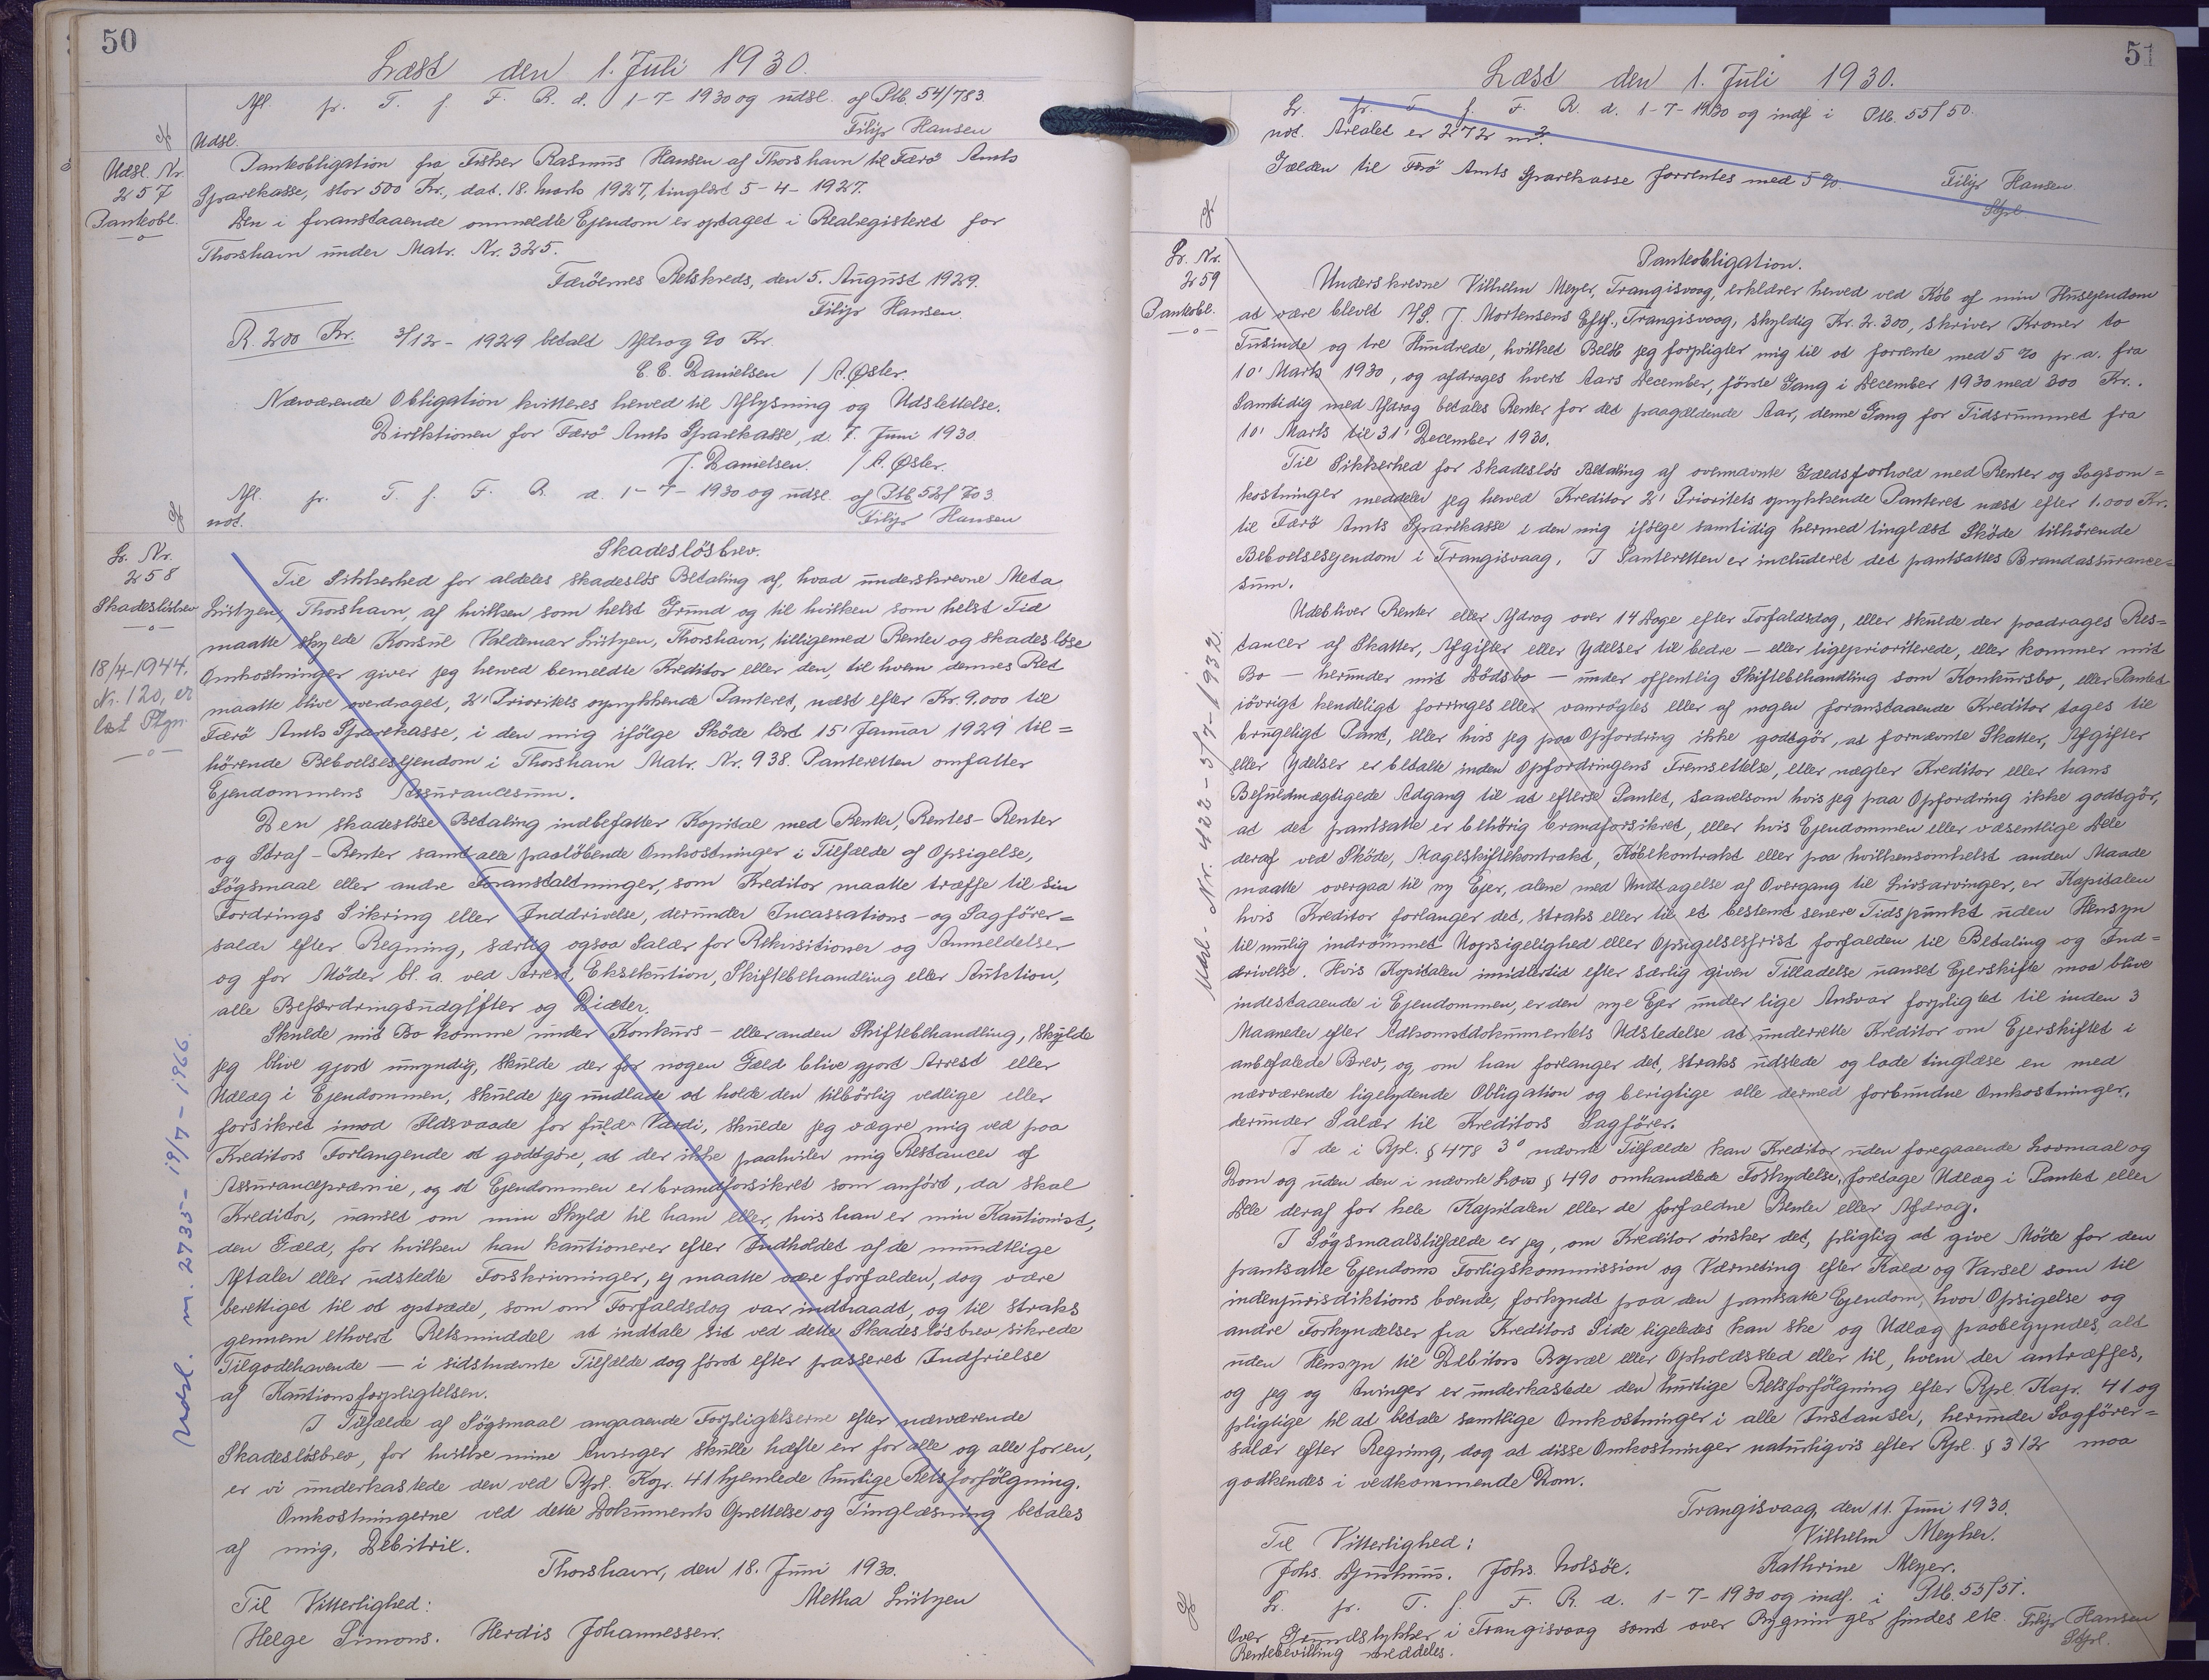 50
Læst den 1. Juli 1930.
Afl. pr. T. f. F. R. d. 1-7-1930 og udsl. af Ptb. 54/783.
Filip Hansen
Udsl.
Udsl. Nr.
257
Panteobl.
Panteobligation fra Fisker Rasmus Hansen af Thorshavn til Færö Amts
Sparekasse, stor 500 Kr., dat. 18. Marts 1927, tinglæst 5-4-1927.
Den i foranstaaende ommeldte Ejendom er optaget i Realregisteret for
Thorshavn under Matr. Nr. 325.
Færöernes Retskreds, den 5. August 1929.
Filip Hansen.
R. 200 Kr. 3/12-1929 betalt Afdrag 90 Kr.
C. C. Danielsen / A. Øster.
Nærværende Obligation kvitteres herved til Aflysning og Udslettelse.
Direktionen for Færö Amts Sparekasse, d. 7. Juni 1930.
J. Danielsen. / A. Øster.
Afl. pr. T. f. F. R. d. 1-7-1930 og udsl. af Ptb. 52/703.
not. Filip Hansen
Lr. Nr.
258
Skadeslösbrev
18/4-1944,
Nr. 120, er
læst Ptgn.
Skadeslösbrev.
Til Sikkerhed for aldeles skadeslös Betaling af, hvad underskrevne Meta
Lützen, Thorshavn, af hvilken som helst Grund og til hvilken som helst Tid
maatte skylde Konsul Valdemar Lützen, Thorshavn, tilligemed Renter og skadeslöse
Omkostninger giver jeg herved bemeldte Kreditor eller den, til hvem dennes Ret
maatte blive overdraget, 2' Prioritets oprykkende Panteret, næst efter Kr. 9.000 til
Færö Amts Sparekasse, i den mig ifölge Sköde læst 15' Januar 1929 til=
hörende Beboelsesejendom i Thorshavn Matr. Nr. 938. Panteretten omfatter
Ejendommens Assurancesum.
Den skadeslöse Betaling indbefatter Kapital med Renter, Rentes-Renter
og Straf-Renter samt alle paalöbende Omkostninger i Tilfælde af Opsigelse,
Sögsmaal eller andre Foranstaltninger, som Kreditor maatte træffe til sin
Fordrings Sikring eller Inddrivelse, derunder Incassations- og Sagförer=
salær efter Regning, særlig ogsaa Salær for Rekvisitioner og Anmeldelser
og for Möder bl. a. ved Arrest, Eksekution, Skiftebehandling eller Auktion,
alle Befordringsudgifter og Diæter.
Skulde mit Bo komme under Konkurs- eller anden Skiftebehandling, skulde
jeg blive gjort umyndig, skulde der for nogen Gæld blive gjort Arrest eller
Udlæg i Ejendommen, skulde jeg undlade at holde den tilbörlig vedlige eller
forsikret imod Ildsvaade for fuld Værdi, skulde jeg vægre mig ved paa
Kreditors Forlangende at godtgöre, at der ikke paahviler mig Restancer af
Assurancepræmie, og at Ejendommen er brandforsikret som anfört, da skal
Kreditor, uanset om min Skyld til ham eller, hvis han er min Kautionist,
den Gæld, for hvilken han kautionerer efter Indholdet af de mundtlige
Aftaler eller udstedte Forskrivninger, ej maatte være forfalden, dog være
berettiget til at optræde, som om Forfaldsdag var indtraadt, og til straks
gennem ethvert Retsmiddel at indtale sit ved dette Skadeslösbrev sikrede
Tilgodehavende — i sidstnævnte Tilfælde dog först efter passeret Indfrielse
af Kautionsforpligtelsen.
I Tilfælde af Sögsmaal angaaende Forpligtelserne efter nærværende
Skadeslösbrev, for hvilke mine Arvinger skulle hæfte en for alle og alle for en,
er vi underkastede den ved Rpl. Kap. 41 hjemlede hurtige Retsforfölgning.
Omkostningerne ved dette Dokuments Oprettelse og Tinglæsning betales
af mig, Debitrice.
Thorshavn, den 18. Juni 1930.
Til Vitterlighed: Metha Lützen
Helge Simons. Herdis Johannessen.
Udsl. m. 2735- 19/7-1966.
51
Læst den 1. Juli 1930.
Lr. pr. T. f. F. R. d. 1-7-1930 og indf. i Ptb. 55/50.
not. Arealet er 272 m².
Gælden til Færö Amts Sparekasse forrentes med 5%.
Filip Hansen
Lr. Nr.
259
Panteobl.
Panteobligation.
Underskrevne Vilhelm Meyer, Trangisvaag, erklærer herved ved Köb af min Husejendom
at være blevet A/S. J. Mortensens Eftf., Trangisvaag, skyldig Kr. 2.300, skriver Kroner to
Tusinde og tre Hundrede, hvilket Belöb jeg forpligter mig til at forrente med 5% pr. a. fra
10' Marts 1930, og afdrages hvert Aars December, förste Gang i December 1930 med 300 Kr..
Samtidig med Afdrag betales Renter for det paagældende Aar, denne Gang for Tidsrummet fra
10' Marts til 31' December 1930.
Til Sikkerhed for skadeslös Betaling af ovennævnte Gældsforhold med Renter og Sagsom=
kostninger meddeler jeg herved Kreditor 2' Prioritets oprykkende Panteret næst efter 1.000 Kr.
til Færö Amts Sparekasse i den mig ifölge samtidig hermed tinglæst Sköde tilhörende
Beboelsesejendom i Trangisvaag. I Panteretten er includeret det pantsattes Brandassurance=
sum.
Udebliver Renter eller Afdrag over 14 Dage efter Forfaldsdag, eller skulde der paadrages Res=
tancer af Skatter, Afgifter eller Ydelser til bedre — eller ligeprioriterede, eller kommer mit
Bo — herunder mit Dödsbo — under offentlig Skiftebehandling som Konkursbo, eller Pantet
iövrigt kendeligt forringes eller vanrögtes eller af nogen foranstaaende Kreditor tages til
brugeligt Pant, eller hvis jeg paa Opfordring ikke godtgör, at fornævnte Skatter, Afgifter
eller Ydelser er betalte inden Opfordringens Fremsættelse, eller nægter Kreditor eller hans
Befuldmægtigede Adgang til at efterse Pantet, saavelsom hvis jeg paa Opfordring ikke godtgör,
at det pantsatte er behörig brandforsikret, eller hvis Ejendommen eller væsentlige Dele
deraf ved Sköde, Mageskiftekontrakt, Köbekontrakt eller paa hvilkensomhelst anden Maade
maatte overgaa til ny Ejer, alene med Undtagelse af Overgang til Livsarvinger, er Kapitalen
hvis Kreditor forlanger det, straks eller til et bestemt senere Tidspunkt uden Hensyn
til mulig indrömmet Uopsigelighed eller Opsigelsesfrist forfalden til Betaling og Ind=
drivelse. Hvis Kapitalen imidlertid efter særlig given Tilladelse uanset Ejerskifte maa blive
indestaaende i Ejendommen, er den nye Ejer under lige Ansvar forpligtet til inden 3
Maaneder efter Adkomstdokumentets Udstedelse at underrette Kreditor om Ejerskiftet i
anbefalede Brev, og, om han forlanger det, straks udstede og lade tinglæse en med
nærværende ligelydende Obligation og berigtige alle dermed forbundne Omkostninger,
derunder Salær til Kreditors Sagförer.
I de i Rpl. § 478 3° nævnte Tilfælde kan Kreditor uden foregaaende Lovmaal og
Dom og uden den i nævnte Lovs § 490 omhandlede Forkyndelse, foretage Udlæg i Pantet eller
Dele deraf for hele Kapitalen eller de forfaldne Renter eller Afdrag.
I Sögsmaalstilfælde er jeg, om Kreditor önsker det, pligtig at give Möde for den
pantsatte Ejendoms Forligskommission og Værneting efter Kald og Varsel som til
indenjurisdiktions boende, forkyndt paa den pantsatte Ejendom, hvor Opsigelse og
andre Forkyndelser fra Kreditors Side ligeledes kan ske og Udlæg paabegyndes, alt
uden Hensyn til Debitors Bopæl eller Opholdssted eller til, hvem der antræffes,
og jeg og Arvinger er underkastede den hurtige Retsforfölgning efter Rpl. Kap. 41 og
pligtige til at betale samtlige Omkostninger i alle Instanser, herunder Sagförer=
salær efter Regning, dog at disse Omkostninger naturligvis efter Rpl. § 312 maa
godkendes i vedkommende Dom.
Trangisvaag, den 11. Juni 1930.
Til Vitterlighed: Vilhelm Meyher.
Johs. Djurhuus. Johs. Nolsöe. Kathrine Meyer.
Lr. pr. T. f. F. R. d. 1-7-1930 og indf. i Ptb. 53/51.
Over Grundstykker i Trangisvaag samt over Bygninger findes etc. Filip Hansen
Rentebevilling meddeles.
Udsl. Nr. 422-5/7-1932.